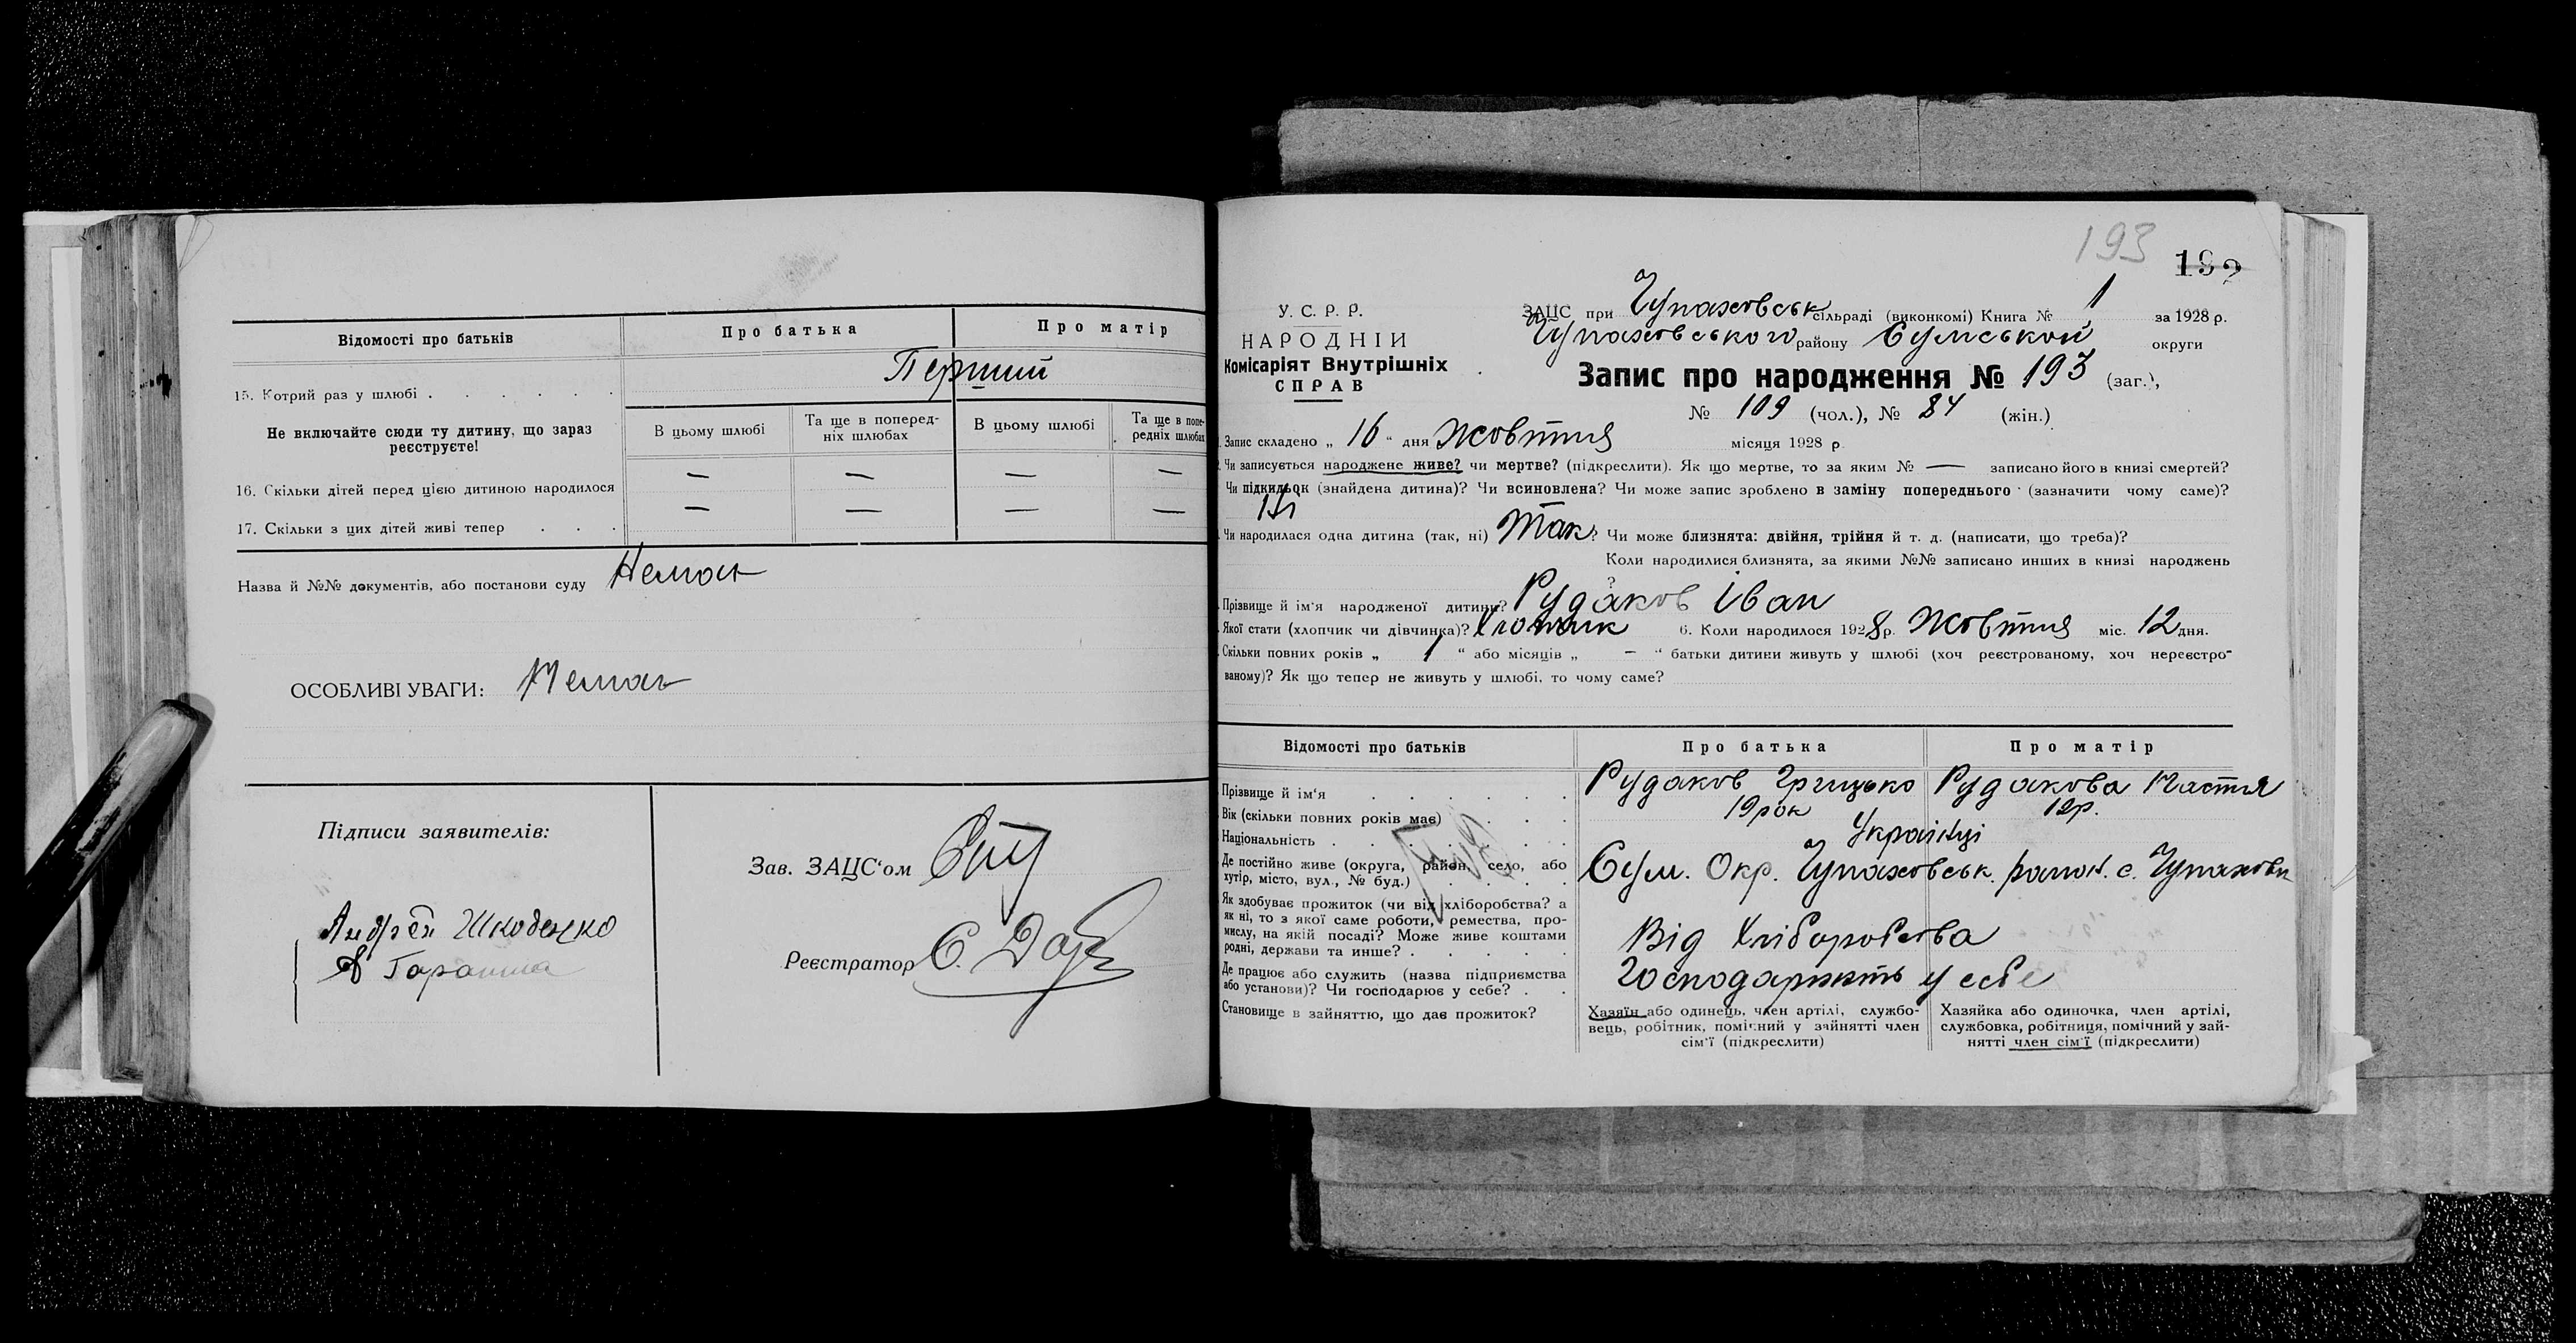 Відомості про батьків
Про батька
Про матір
15. Котрий раз у шлюбі . . . . . .
Перший
Не включайте сюди ту дитину, що зараз реєструєте!
В цьому шлюбі
Та ще в поперед-
ніх шлюбах
В цьому шлюбі
Та ще в попе-
редніх шлюбах
16. Скільки дітей перед цією дитиною народилося — — — —
17. Скільки з цих дітей живі тепер . . . — — — —
Назва й №№ документів, або постанови суду Немає
ОСОБЛИВІ УВАГИ: Немає
Підписи заявителів:
Андрей Шкоденко
Зав. ЗАЦС‘ом
Реєстратор
193
192
У. С. Р. Р.
НАРОДНІЙ
Комісаріят Внутрішніх
СПРАВ
ЗАЦС при Чупаховськ сільраді (виконкомі) Книга № 1 за 1928 р.
Чупаховського району Сумської округи
Запис про народження № 193 (заг.),
№ 109 (чол.), № 84 (жін.)
Запис складено „ 16 “ дня Жовтня місяця 1928 р.
Чи записується народжене живе? чи мертве? (підкреслити). Як що мертве, то за яким № — записано його в книзі смертей?
Чи підкидьок (знайдена дитина)? Чи всиновлена? Чи може запис зроблено в заміну попереднього (зазначити чому саме)?
Ні
Чи народилася одна дитина (так, ні) Так? Чи може близнята: двійня, трійня й т. д. (написати, що треба)?
Коли народилися близнята, за якими №№ записано инших в книзі народжень
?
Прізвище й ім‘я народженої дитини? Рудаков Іван
Якої стати (хлопчик чи дівчинка)? Хлопчик 6. Коли народилося 1928 р. Жовтня міс. 12 дня.
Скільки повних років „ 1 “ або місяців „ — “ батьки дитини живуть у шлюбі (хоч реєстрованому, хоч нереєстро-
ваному)? Як що тепер не живуть у шлюбі, то чому саме?
Відомості про батьків
Про батька
Про матір
Прізвище й ім‘я . . . . . . Рудаков Грицько Рудакова Настя
Вік (скільки повних років має) . . . 19 рок 19р.
Національність . . . . . . . Українці
Де постійно живе (округа, район, село, або
хутір, місто, вул., № буд.) . . . .
Сум. Окр. Чупаховськ. район. с. Чупаховк
Як здобуває прожиток (чи від хліборобства? а
як ні, то з якої саме роботи, ремества, про-
мислу, на якій посаді? Може живе коштами
родні, держави та инше? . . . . .
Від Хліборобства
Де працює або служить (назва підприємства
або установи)? Чи господарює у себе? . .
Господарюють у себе
Становище в зайняттю, що дав прожиток?
Хазяїн або одинець, член артілі, службо-
вець, робітник, помічний у зайнятті член
сім‘ї (підкреслити)
Хазяйка або одиночка, член артілі,
службовка, робітниця, помічний у зай-
нятті член сім‘ї (підкреслити)